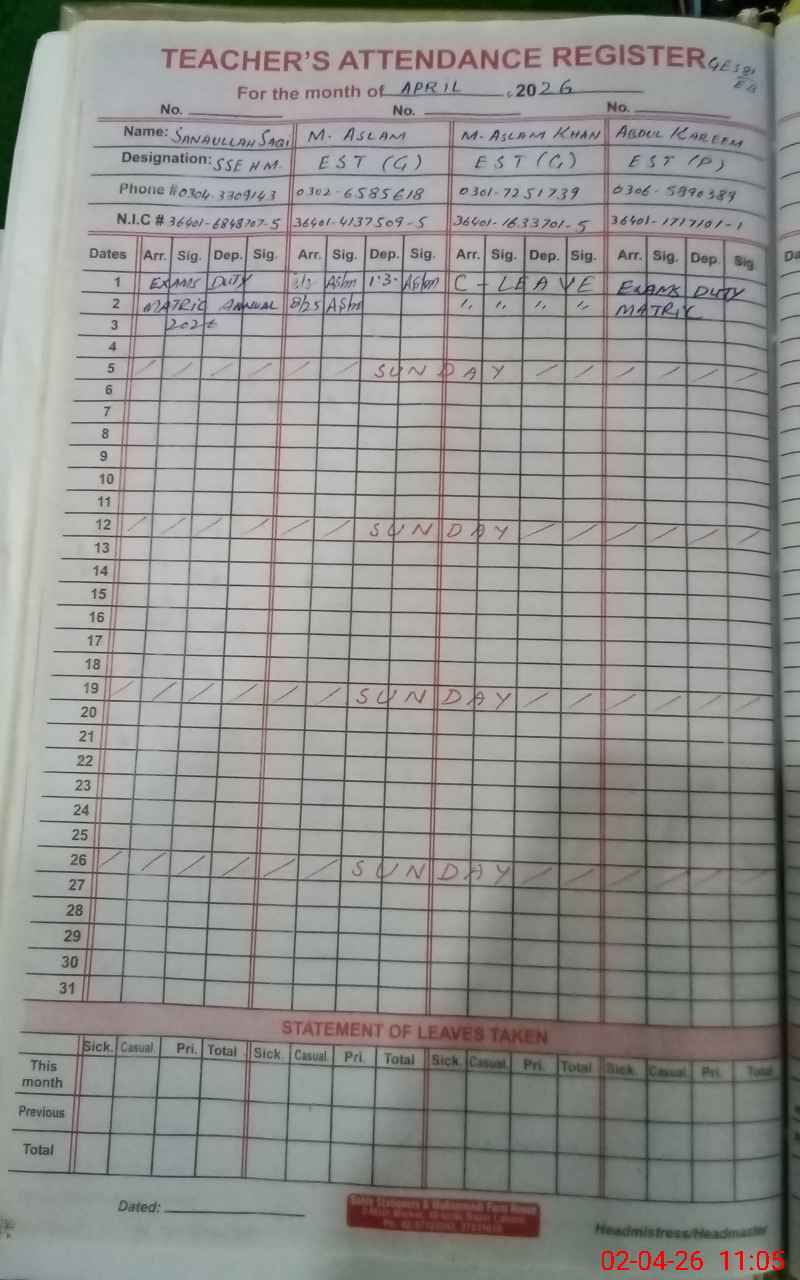 TEACHER'S ATTENDANCE REGISTER
For the month of APRIL 2026
No. No. No.
Name: SANAULLAH SAQI M. ASLAM M. ASLAM KHAN ABDUL KAREEM
Designation: SSE HM. EST (G) EST (G) EST (P)
Phone # 0304-3309143 0302-6585618 0301-7251739 0306-5890389
N.I.C # 36401-6848707-5 36401-4137509-5 36401-1633701-5 36401-1717101-1
Dates Arr. Sig. Dep. Sig. Arr. Sig. Dep. Sig. Arr. Sig. Dep. Sig. Arr. Sig. Dep. Sig.
1 EXAMS DUTY C - LEAVE EXAMS DUTY
2 MATRIC ANNUAL 8/25 " " " " MATRIC
3
4
5 SUNDAY
6
7
8
9
10
11
12 SUNDAY
13
14
15
16
17
18
19 SUNDAY
20
21
22
23
24
25
26 SUNDAY
27
28
29
30
31
STATEMENT OF LEAVES TAKEN
Sick. Casual. Pri. Total Sick. Casual. Pri. Total Sick. Casual. Pri. Total Sick. Casual. Pri. Total
This month
Previous
Total
Dated:
Headmistress/Headmaster
02-04-26 11:05